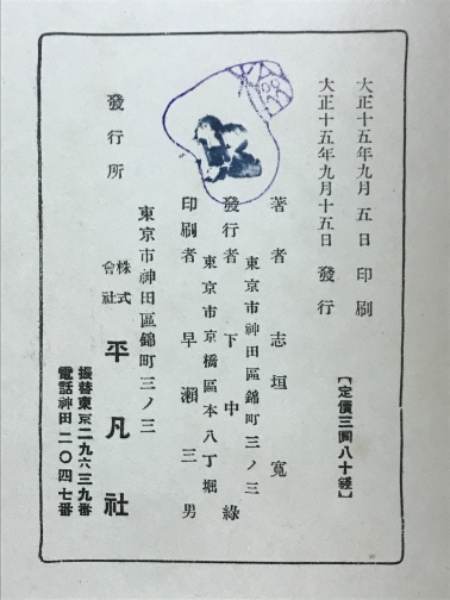 大正十五年九月五日印刷
大正十五年九月十五日發行
【定價三圓八十錢】
著者志垣寬
東京市神田區錦町三ノ三
發行者下中綠
東京市京橋區本八丁堀
印刷者早瀨三男
東京市神田區錦町三ノ三
發行所
株式會社平凡社
振替東京二九六三九番
電話神田二〇四七番